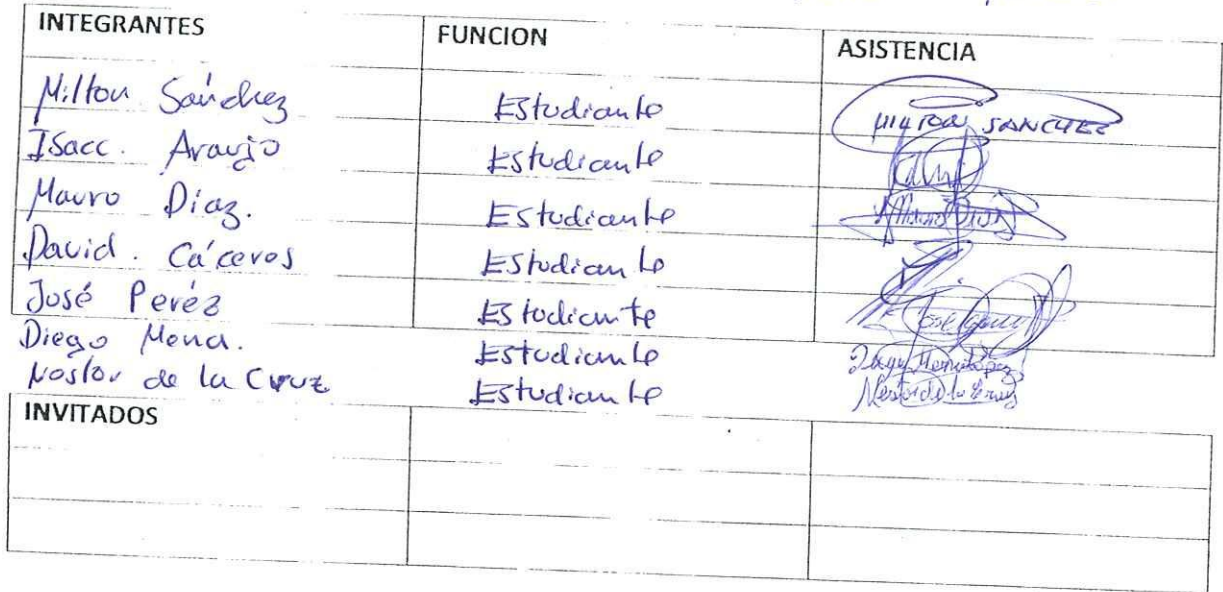 INTEGRANTES FUNCION ASISTENCIA
Milton Sánchez Estudiante MILTON SANCHEZ
Isacc. Araujo Estudiante
Mauro Díaz. Estudiante
David. Cáceres Estudiante
José Peréz Estudiante
Diego Mena. Estudiante
Nestor de la Cruz Estudiante Nestor de la Cruz
INVITADOS